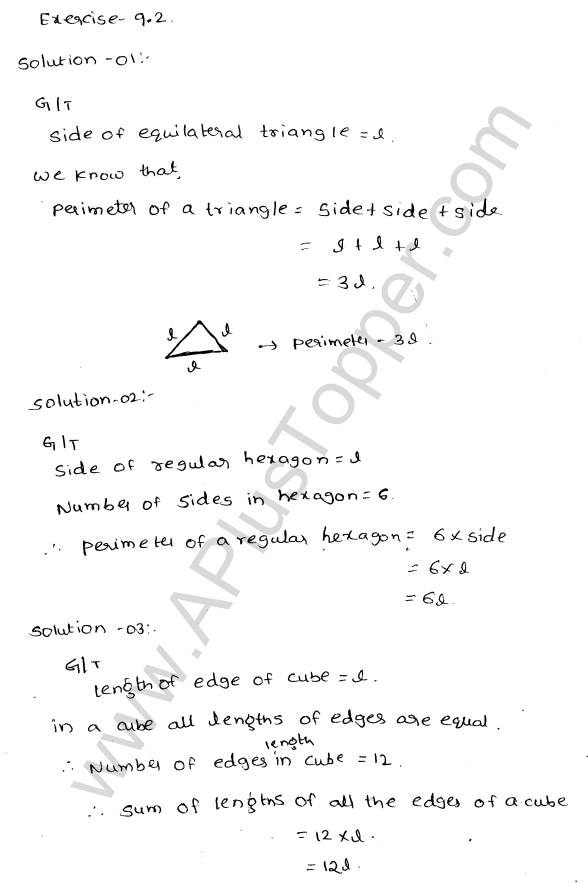 Exercise- 9.2.
Solution -01:-
G/T
Side of equilateral triangle = l.
we know that,
perimeter of a triangle = side + side + side
= l + l + l
= 3l.
l l
→ perimeter - 3l.
l
Solution-02:-
G/T
Side of regular hexagon = l
Number of sides in hexagon = 6.
∴ perimeter of a regular hexagon = 6 x side
= 6 x l
= 6l.
Solution -03:-
G/T
length of edge of cube = l.
in a cube all lengths of edges are equal.
length
∴ Number of edges in cube = 12.
∴ sum of lengths of all the edges of a cube
= 12 x l.
= 12l.
www.APlusTopper.com